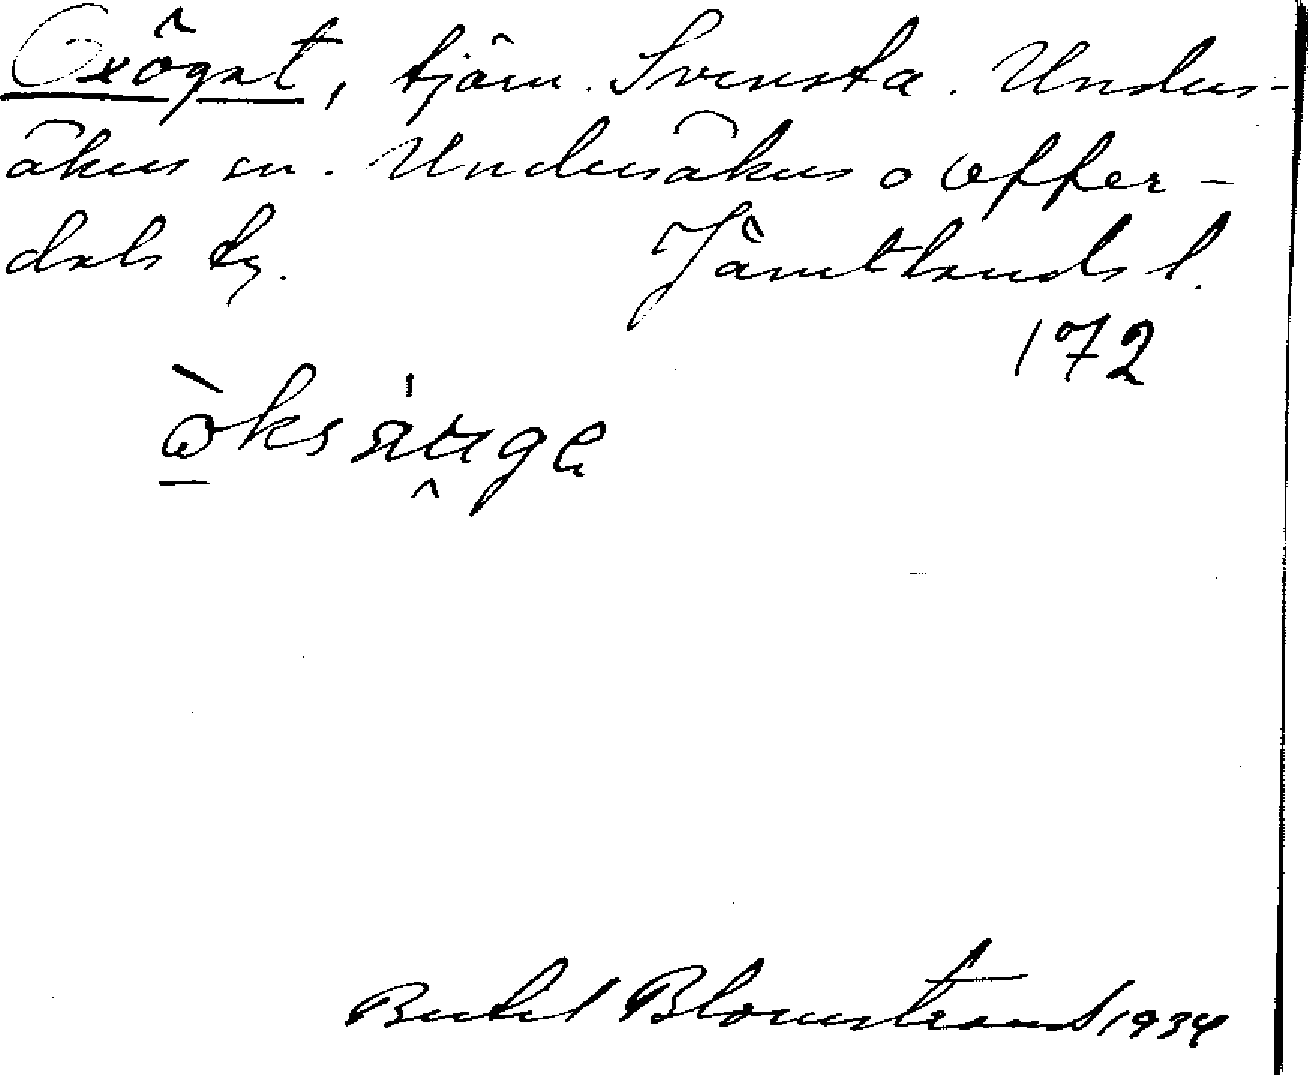 Oxögat, tjärn. Svensta. Unders-
åkers sn. Undersåkers o Offer-
dals tg. Jämtlands l.
172
Bertel Blomstrand 1934